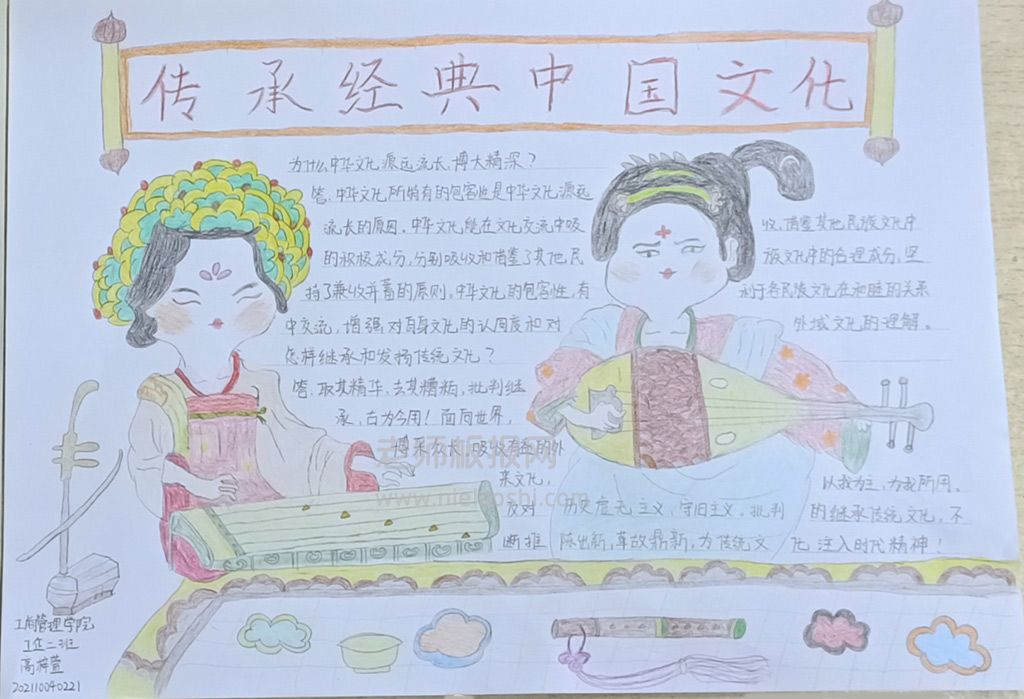 传承经典中国文化
为什么中华文化源远流长、博大精深？
答：中华文化所特有的包容性是中华文化源远
流长的原因。中华文化能在文化交流中吸 收、借鉴其他民族文化中
的积极成分，分别吸收和借鉴了其他民 族文化中的合理成分，坚
持了兼收并蓄的原则。中华文化的包容性，有 利于各民族文化在和睦的关系
中交流，增强对自身文化的认同度和对 外域文化的理解。
怎样继承和发扬传统文化？
答：取其精华，去其糟粕，批判继
承，古为今用！面向世界，
博采众长，吸收有益的外
来文化， 以我为主，为我所用。
反对 历史虚无主义，守旧主义，批判 的继承传统文化，不
断推 陈出新，革故鼎新，为传统文 化注入时代精神！
老师板报网
工商管理学院
工企二班
高梓萱
202110040221